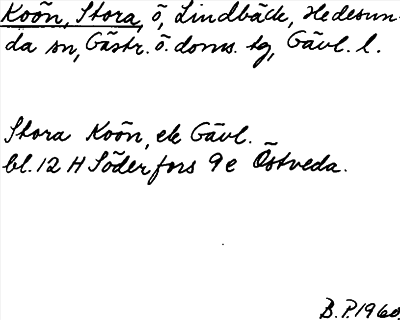 Koön, Stora, ö, Lindbäck, Hedesun-
da sn, Gästr. ö. doms. tg, Gävl. l.
Stora Koön, ek Gävl.
bl. 12 H Söderfors 9e Östveda.
B.P. 1960.